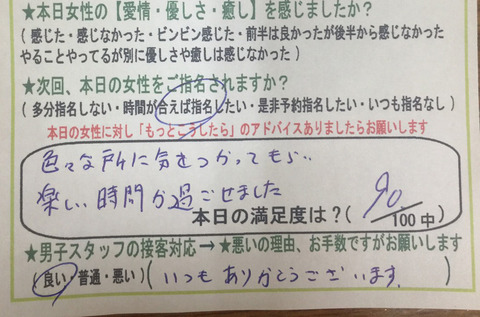 ★本日女性の【愛情・優しさ・癒し】を感じましたか？
（感じた・感じなかった・ビンビン感じた・前半は良かったが後半から感じなかった
やることやってるが別に優しさや癒しは感じなかった）
★次回、本日の女性をご指名されますか？
（多分指名しない・時間が合えば指名したい・是非予約指名したい・いつも指名なし）
本日の女性に対し「もっとこうしたら」のアドバイスありましたらお願いします
色々な所に気をつかってもらい
楽しい時間が過ごせました
本日の満足度は？（90/100中）
★男子スタッフの接客対応→★悪いの理由、お手数ですがお願いします
（良い・普通・悪い）（いつもありがとうございます。）